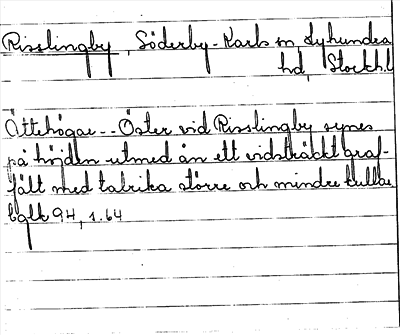 Risslingby, Söderby-Karls sn, Lyhundra
hd, Stockh.l
Ättehögar -- Öster vid Risslingby synes
på höjden utmed ån ett vidsträckt graf-
fält med talrika större och mindre kullar
94, s. 64